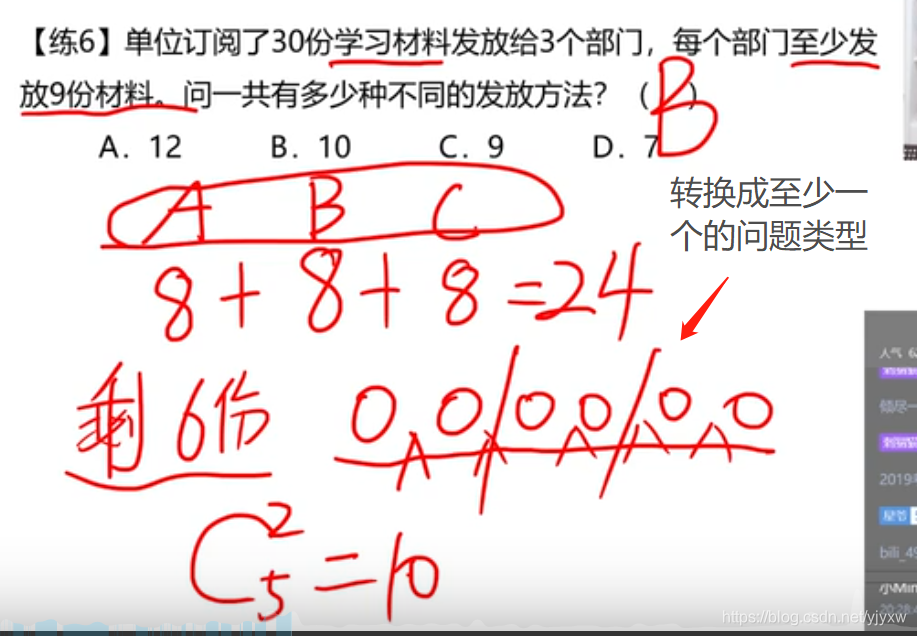 【练6】单位订阅了30份学习材料发放给3个部门，每个部门至少发
放9份材料。问一共有多少种不同的发放方法？（ ）
B
A．12 B．10 C．9 D．7
转换成至少一
个的问题类型
A B C
8+8+8=24
剩6份 00/00/00
C₅²=10
人气 6
2019
bili_49
小Min
20:28
https://blog.csdn.net/yjyxw